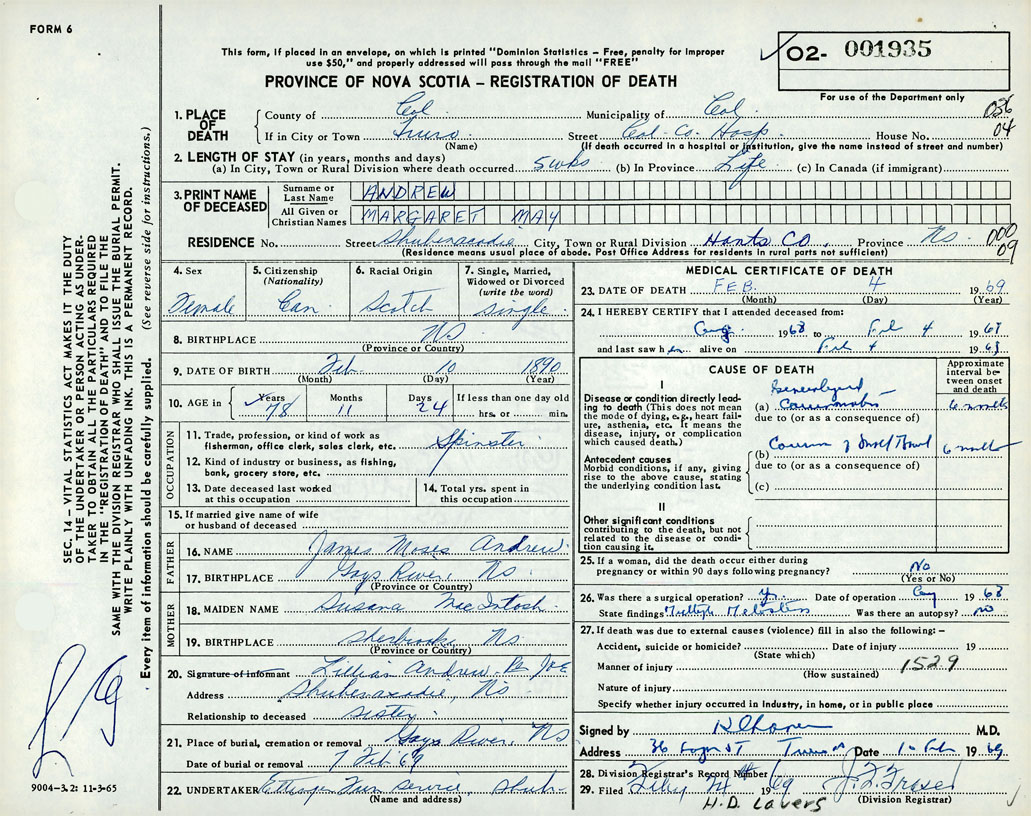 FORM 6
This form, if placed in an envelope, on which is printed "Dominion Statistics – Free, penalty for improper
use $50," and properly addressed will pass through the mail "FREE"
PROVINCE OF NOVA SCOTIA – REGISTRATION OF DEATH
O2- 001935
For use of the Department only
036
04
1. PLACE OF DEATH
County of Col. Municipality of Col.
If in City or Town Truro Street Col. Co. Hosp. House No.
(Name) (If death occurred in a hospital or institution, give the name instead of street and number)
2. LENGTH OF STAY (in years, months and days)
(a) In City, Town or Rural Division where death occurred 5 wks (b) In Province Life (c) In Canada (if immigrant)
3. PRINT NAME OF DECEASED
Surname or Last Name ANDREW
All Given or Christian Names MARGARET MAY
RESIDENCE No. Street Shubenacadie City, Town or Rural Division Hants Co., Province NS.
(Residence means usual place of abode. Post Office Address for residents in rural parts not sufficient)
000
09
4. Sex
Female
5. Citizenship
(Nationality)
Can
6. Racial Origin
Scotch
7. Single, Married,
Widowed or Divorced
(write the word)
single
8. BIRTHPLACE NS
(Province or Country)
9. DATE OF BIRTH Feb. 10 1890
(Month) (Day) (Year)
10. AGE in Years 78 Months 11 Days 24 If less than one day old
hrs. or min.
OCCUPATION
11. Trade, profession, or kind of work as
fisherman, office clerk, sales clerk, etc. Spinster
12. Kind of industry or business, as fishing,
bank, grocery store, etc.
13. Date deceased last worked
at this occupation
14. Total yrs. spent in
this occupation
15. If married give name of wife
or husband of deceased
FATHER
16. NAME James Moses Andrew
17. BIRTHPLACE Gays River, NS.
(Province or Country)
MOTHER
18. MAIDEN NAME Susana MacIntosh
19. BIRTHPLACE Sherbrooke, NS
(Province or Country)
20. Signature of informant Lillian Andrew Per JOE
Address Shubenacadie, NS.
Relationship to deceased sister
21. Place of burial, cremation or removal Gays River, NS
Date of burial or removal 7 Feb 69
22. UNDERTAKER Ettinger Fun Service, Shub-
(Name and address)
MEDICAL CERTIFICATE OF DEATH
23. DATE OF DEATH FEB. 4 1969
(Month) (Day) (Year)
24. I HEREBY CERTIFY that I attended deceased from:
Aug. 1968 to Feb 4 1969
and last saw her alive on Feb 4 1969
CAUSE OF DEATH
Approximate
interval be-
tween onset
and death
I
Disease or condition directly lead-
ing to death (This does not mean
the mode of dying, e.g., heart fail-
ure, asthenia, etc. It means the
disease, injury, or complication
which caused death.)
Generalized
(a) 6 months
due to (or as a consequence of)
Antecedent causes
Morbid conditions, if any, giving
rise to the above cause, stating
the underlying condition last.
(b) of Small Bowel 6 months
due to (or as a consequence of)
(c)
II
Other significant conditions
contributing to the death, but not
related to the disease or condi-
tion causing it.
25. If a woman, did the death occur either during
pregnancy or within 90 days following pregnancy? No
(Yes or No)
26. Was there a surgical operation? Yes Date of operation Aug 1968
State findings Multiple Metastases Was there an autopsy? no
27. If death was due to external causes (violence) fill in also the following:–
Accident, suicide or homicide? Date of injury 19
(State which)
Manner of injury 1529
(How sustained)
Nature of injury
Specify whether injury occurred in Industry, in home, or in public place
Signed by M.D.
Address 36 ST Truro Date 10 Feb 1969
28. Division Registrar's Record Number
29. Filed 1969 J.F. Fraser
H.D. Lavers (Division Registrar)
SEC. 14 – VITAL STATISTICS ACT MAKES IT THE DUTY
OF THE UNDERTAKER OR PERSON ACTING AS UNDER-
TAKER TO OBTAIN ALL THE PARTICULARS REQUIRED
IN THE "REGISTRATION OF DEATH" AND TO FILE THE
SAME WITH THE DIVISION REGISTRAR WHO SHALL ISSUE THE BURIAL PERMIT.
WRITE PLAINLY WITH UNFADING INK. THIS IS A PERMANENT RECORD.
Every item of information should be carefully supplied. (See reverse side for instructions.)
9004-3.2: 11-3-65